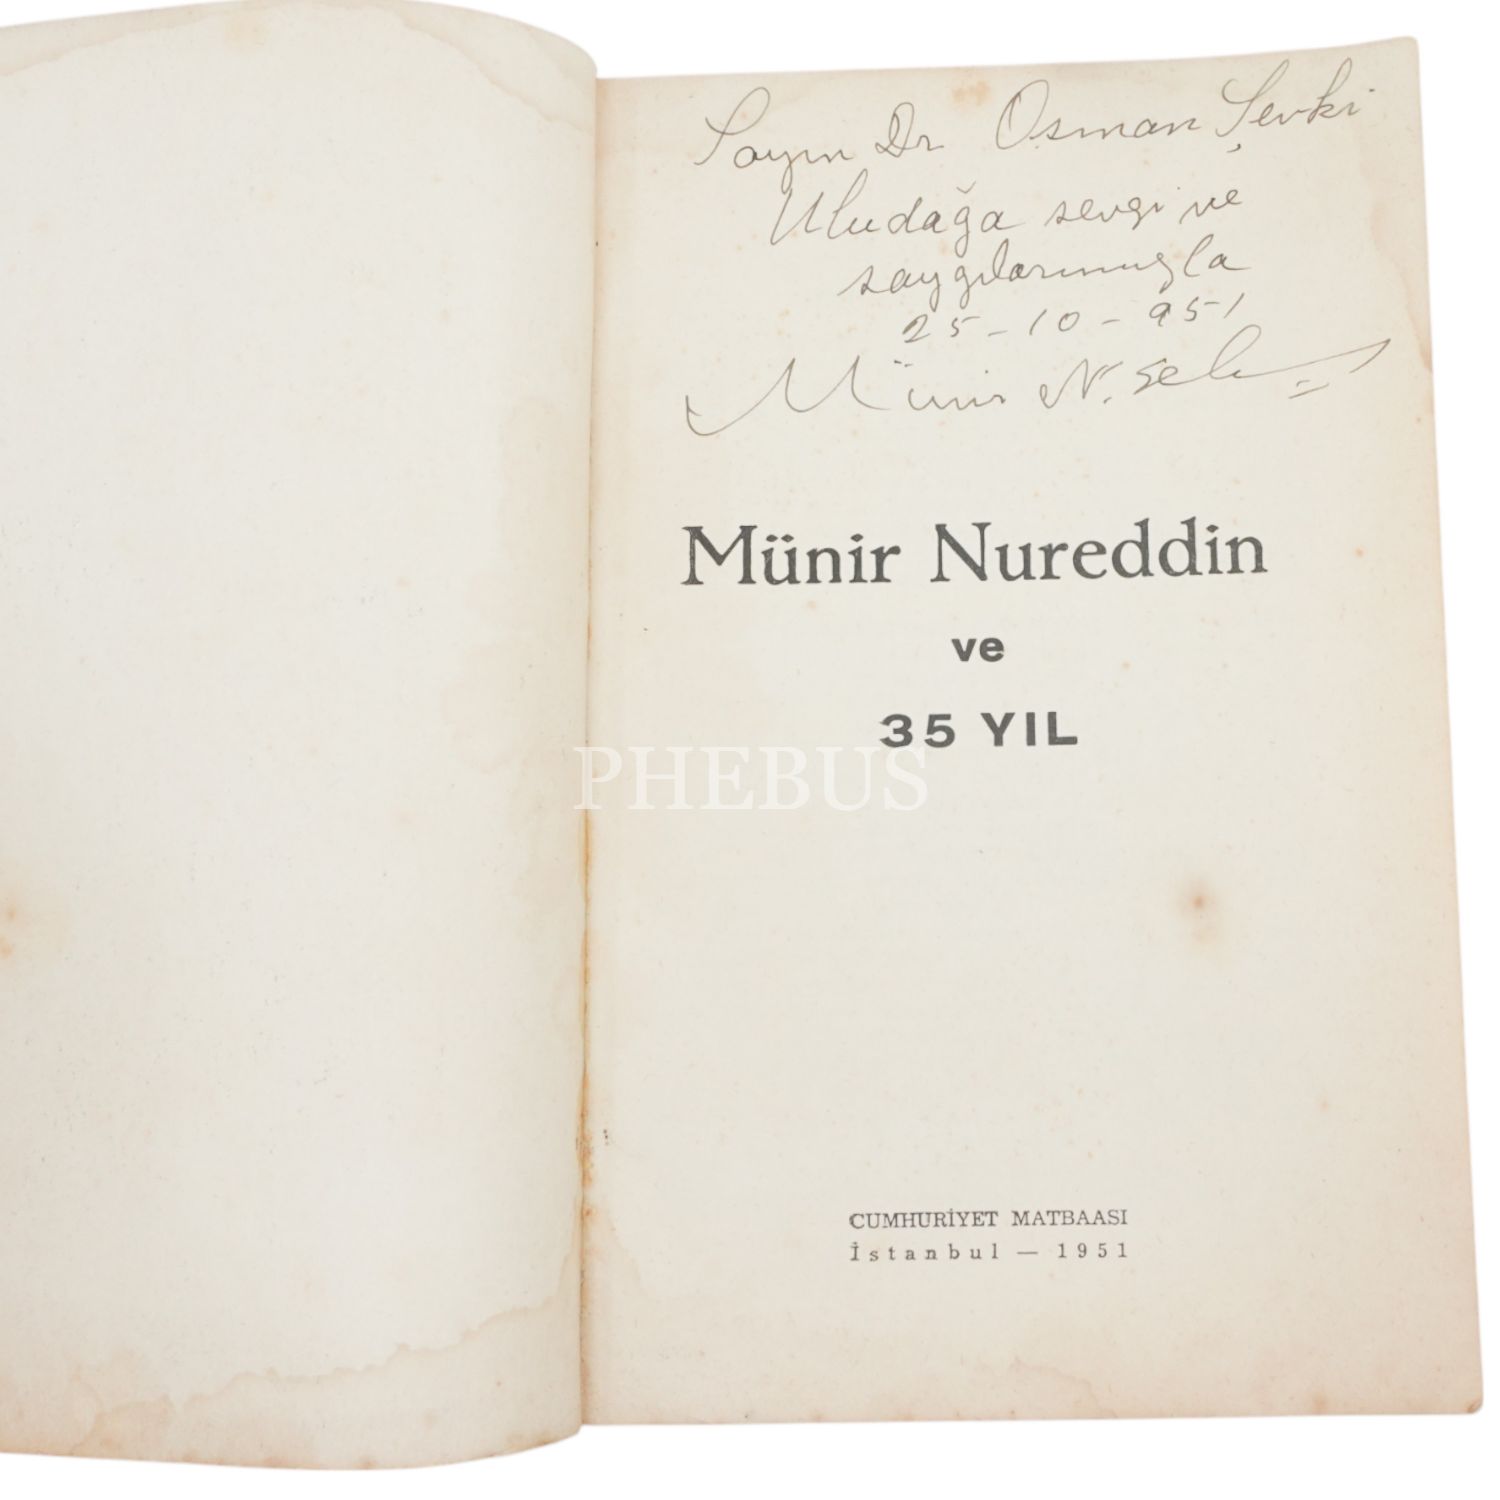 Sayın Dr Osman Şevki
Uludağa sevgi ve
saygılarımızla
25-10-951
Münir N. Sel
Münir Nureddin
ve
35 YIL
PHEBUS
CUMHURİYET MATBAASI
İstanbul — 1951